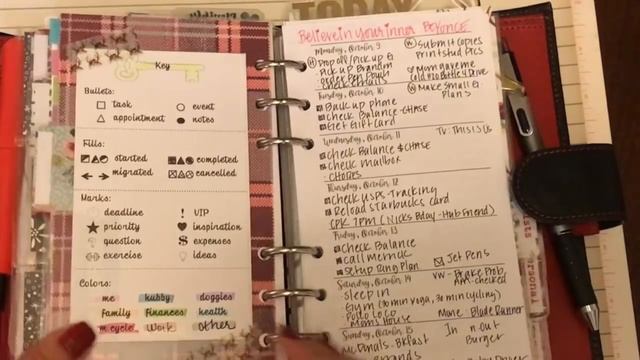 TODAY
Key
Bullets:
task
event
appointment
notes
Fills:
started
completed
migrated
cancelled
Marks:
deadline
VIP
priority
inspiration
question
$ expenses
exercise
ideas
Colors:
me
hubby
doggies
family
finances
health
m.cycle
work
other
Believe in your inner BEYONCE
Monday, October 9
Drop off/Pick up
Pick up Brandon
check emails
Submit copies
Print stud pics
Mom gave me
Make small G.
Plans
Tuesday, October 10
Back up phone
Check Balance - CHASE
Get Gift card
Wednesday, October 11
TV: THIS IS US
Check Balance $ CHASE
Check Mailbox
- CHORES
Thursday, October 12
Check USPS - Tracking
Reload Starbucks card
CPK 7PM (Nick's Bday - Hub Friend)
Friday, October 13
Check Balance
Call
Setup Plan
Jet Pens
Saturday, October 14
VW - Brake Prob
AM - checked
Sleep in
Gym (30 min yoga, 30 min cycling)
Pollo Loco
Movie Blade Runner
Mom's House
Sunday, October 15
McDonalds - Bkfast
In n out
Burger